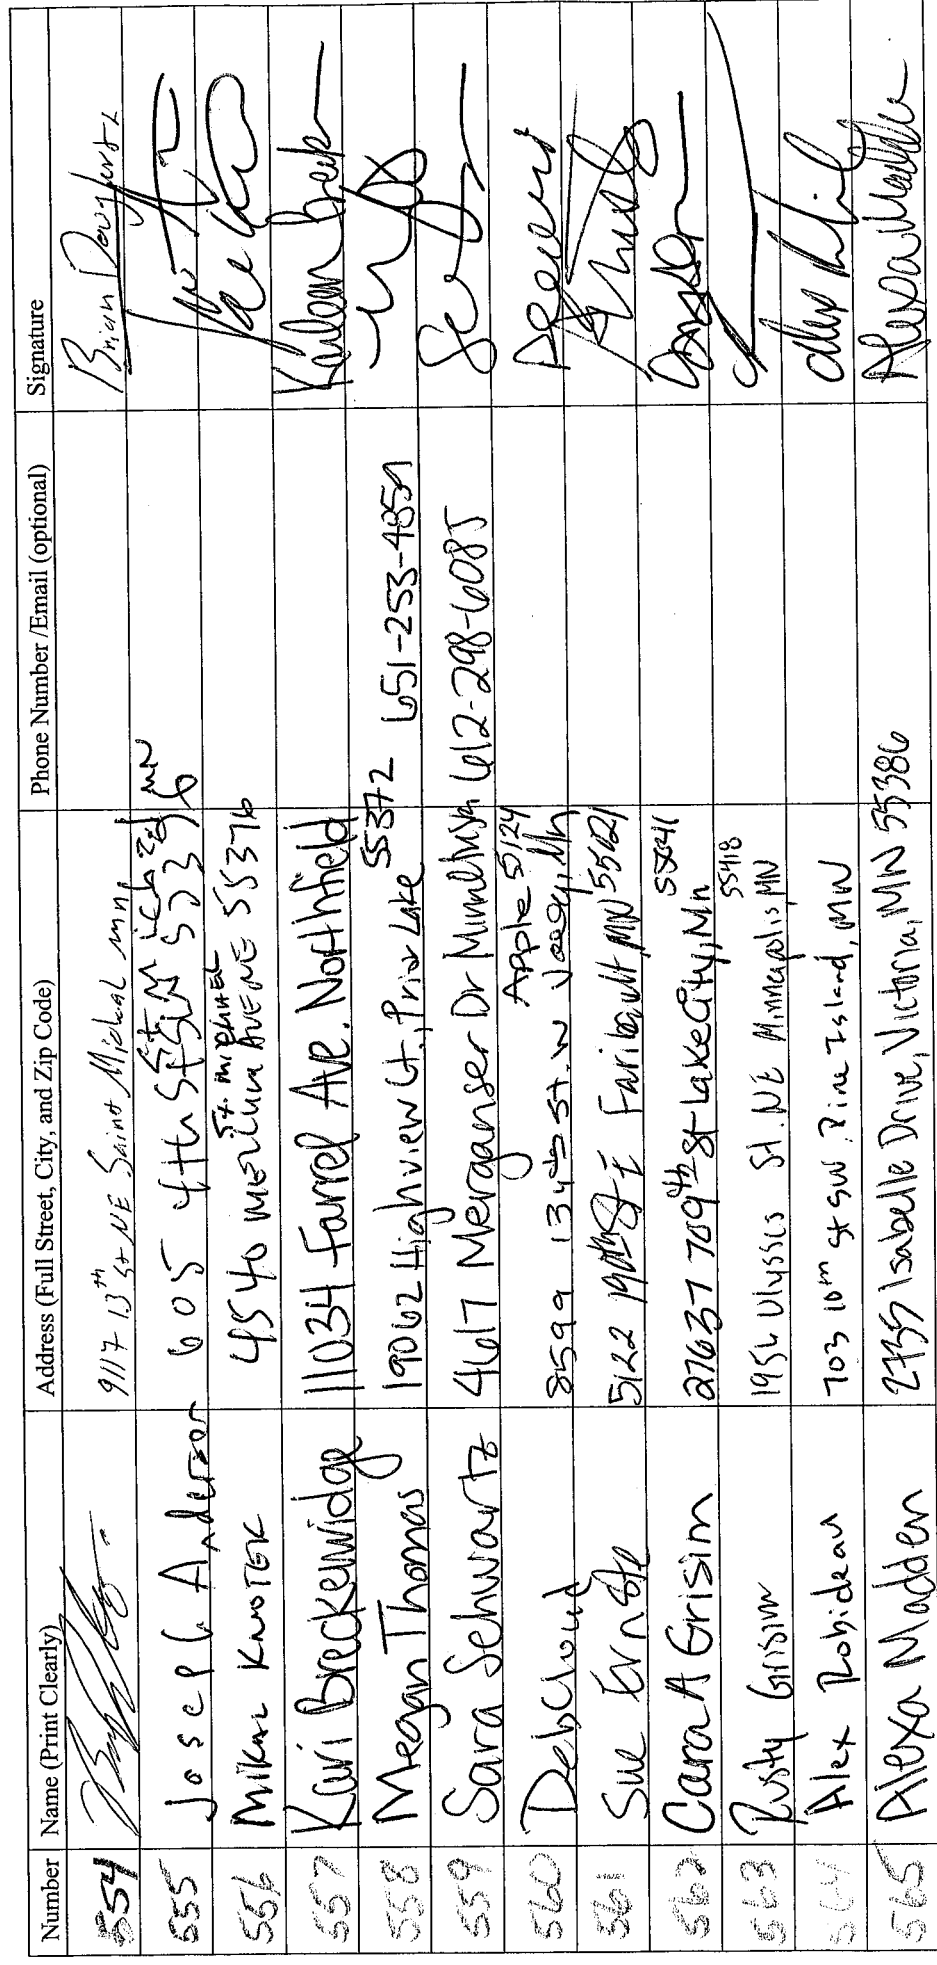 Number Name (Print Clearly) Address (Full Street, City, and Zip Code) Phone Number /Email (optional) Signature
554 9117 13th St NE Saint Michael mn Brian
555 Joseph Anderson 605 4th St SW St Michael MN
556 Mikal Knotek 4540 AVE NE St. Michael 55376
557 Kari Breckenridge 11034 Farrel Ave. Northfield
558 Megan Thomas 19062 Highview Ct, Prior Lake 55372 651-253-4859
559 Sara Schwartz 4617 Merganser Dr 612-298-6085
560 Deb Cloud 8599 134th St. W Apple Valley, Mn 55124
561 Sue 5122 190th St E Faribault MN 55021
562 Cara A Grisim 27637 709th St Lake City, Mn 55041
563 Rusty Grisim 1956 Ulysses St. NE Minneapolis, MN 55418
564 Alex Robideau 703 10th St SW, Pine Island, MN Alex
565 Alexa Madden 2735 Isabelle Drive, Victoria, MN 55386 Alexa Madden